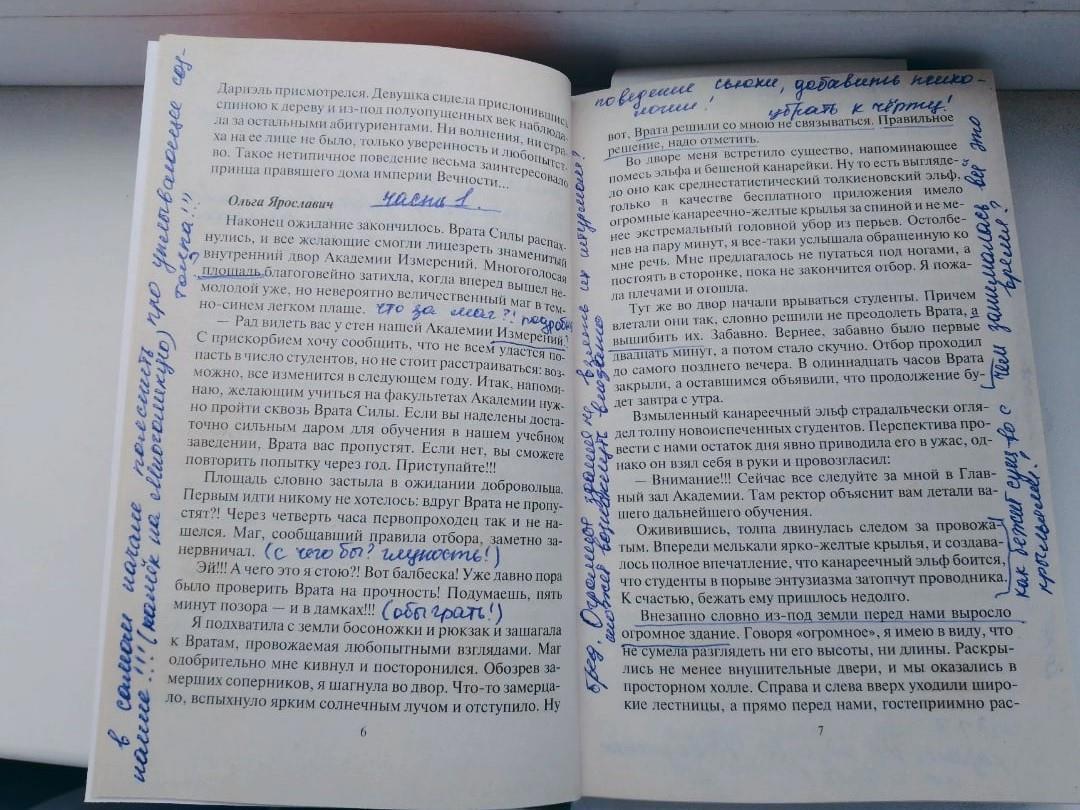 Дариэль присмотрелся. Девушка сидела прислонившись
спиною к дереву и из-под полуопущенных век наблюда-
ла за остальными абитуриентами. Ни волнения, ни стра-
ха на ее лице не было, только уверенность и любопытст-
во. Такое нетипичное поведение весьма заинтересовало
принца правящего дома империи Вечности...
Ольга Ярославич часть 1.
Наконец ожидание закончилось. Врата Силы распах-
нулись, и все желающие смогли лицезреть знаменитый
внутренний двор Академии Измерений. Многоголосая
площадь благоговейно затихла, когда вперед вышел не-
молодой уже, но невероятно величественный маг в тем-
но-синем легком плаще. что за маг?! подробн
— Рад видеть вас у стен нашей Академии Измерений.
С прискорбием хочу сообщить, что не всем удастся по-
пасть в число студентов, но не стоит расстраиваться: воз-
можно, все изменится в следующем году. Итак, напоми-
наю, желающим учиться на факультетах Академии нуж-
но пройти сквозь Врата Силы. Если вы наделены доста-
точно сильным даром для обучения в нашем учебном
заведении, Врата вас пропустят. Если нет, вы сможете
повторить попытку через год. Приступайте!!!
Площадь словно застыла в ожидании добровольца.
Первым идти никому не хотелось: вдруг Врата не пропу-
стят?! Через четверть часа первопроходец так и не на-
шелся. Маг, сообщавший правила отбора, заметно за-
нервничал. (с чего бы? глупость!)
Эй!!! А чего это я стою?! Вот балбеска! Уже давно пора
было проверить Врата на прочность! Подумаешь, пять
минут позора — и в дамках!!! (обыграть!)
Я подхватила с земли босоножки и рюкзак и зашагала
к Вратам, провожаемая любопытными взглядами. Маг
одобрительно мне кивнул и посторонился. Обозрев за-
мерших соперников, я шагнула во двор. Что-то замерца-
ло, вспыхнуло ярким солнечным лучом и отступило. Ну
6
в самом начале пояснить про улюлюкающее соз-
нание!!!! (намёк на
толпа!!!
поведение съёжи, добавить психо-
логии! убрать к чёрту!
вот. Врата решили со мною не связываться. Правильное
решение, надо отметить.
Во дворе меня встретило существо, напоминающее
помесь эльфа и бешеной канарейки. Ну то есть выгляде-
ло оно как среднестатистический толкиеновский эльф,
только в качестве бесплатного приложения имело
огромные канареечно-желтые крылья за спиной и не ме-
нее экстремальный головной убор из перьев. Остолбе-
нев на пару минут, я все-таки услышала обращенную ко
мне речь. Мне предлагалось не путаться под ногами, а
постоять в сторонке, пока не закончится отбор. Я пожа-
ла плечами и отошла.
Тут же во двор начали врываться студенты. Причем
влетали они так, словно решили не преодолеть Врата, а
вышибить их. Забавно. Вернее, забавно было первые
двадцать минут, а потом стало скучно. Отбор проходил
до самого позднего вечера. В одиннадцать часов Врата
закрыли, а оставшимся объявили, что продолжение бу-
дет завтра с утра.
Взмыленный канареечный эльф страдальчески огля-
дел толпу новоиспеченных студентов. Перспектива про-
вести с нами остаток дня явно приводила его в ужас, од-
нако он взял себя в руки и провозгласил:
— Внимание!!! Сейчас все следуйте за мной в Глав-
ный зал Академии. Там ректор объяснит вам детали ва-
шего дальнейшего обучения.
Оживившись, толпа двинулась следом за провожа-
тым. Впереди мелькали ярко-желтые крылья, и создава-
лось полное впечатление, что канареечный эльф боится,
что студенты в порыве энтузиазма затопчут проводника.
К счастью, бежать ему пришлось недолго.
Внезапно словно из-под земли перед нами выросло
огромное здание. Говоря «огромное», я имею в виду, что
не сумела разглядеть ни его высоты, ни длины. Раскры-
лись не менее внушительные двери, и мы оказались в
просторном холле. Справа и слева вверх уходили широ-
кие лестницы, а прямо перед нами, гостеприимно рас-
7
бред. Огромное здание не
может возникнуть внезапно
взять их штурмом?
чем занималась всё это
время?
как бежит существо с
крыльями?